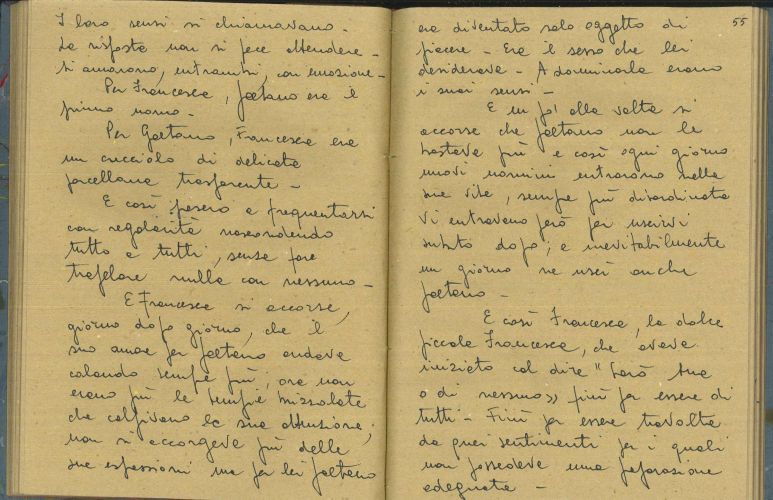 I loro sensi si chiamavano.
La risposta non si fece attendere -
Si amarono, entrambi, con emozione -
Per Francesca, Gaetano era il
primo uomo -
Per Gaetano, Francesca era
un cucciolo di delicata
porcellana trasparente -
E così presero a frequentarsi
con regolarità nascondendo
tutto a tutti, senza fare
trapelare nulla con nessuno -
E Francesca si accorse,
giorno dopo giorno, che il
suo amore per Gaetano andava
calando sempre più; ora non
erano più le tempie brizzolate
che colpivano la sua attenzione,
non si accorgeva più delle
sue espressioni ma per lei Gaetano
55
era diventato solo oggetto di
piacere - Era il sesso che lei
desiderava - A dominarla erano
i suoi sensi -
E un po' alla volta si
accorse che Gaetano non le
bastava più e così ogni giorno
nuovi uomini entrarono nella
sua vita, sempre più disordinata
Vi entravano però per uscirvi
subito dopo; e inevitabilmente
un giorno ne uscì anche
Gaetano -
E così Francesca, la dolce
piccola Francesca, che aveva
iniziato col dire "Sarò tua
o di nessuno» finì per essere di
tutti - Finì per essere travolta
da quei sentimenti per i quali
non possedeva una preparazione
adeguata -